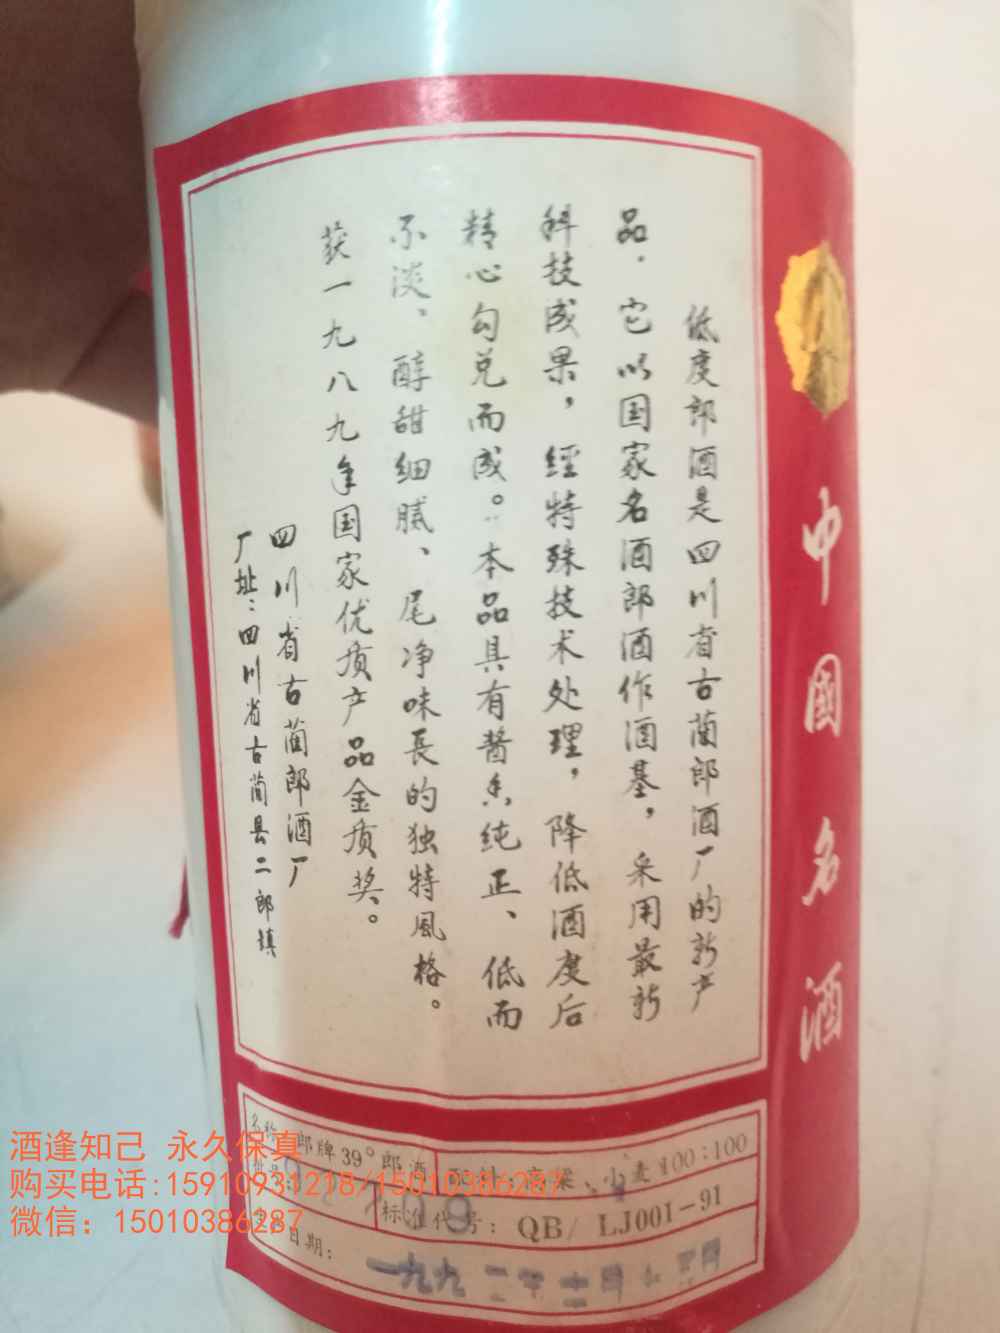 低度郎酒是四川省古蔺郎酒厂的新产
品.它以国家名酒郎酒作酒基，采用最新
科技成果，经特殊技术处理，降低酒度后
精心勾兑而成。本品具有酱香纯正、低而
不淡、醇甜细腻、尾净味長的独特風格。
获一九八九年国家优质产品金质奖。
四川省古蔺郎酒厂
厂址:四川省古蔺县二郎镇
中國名酒
名称
郎牌39°郎酒
高粱、小麦100:100
标准代号: QB/ LJ001-91
日期:
一九九二年十二月
酒逢知己 永久保真
购买电话:15910931218/15010386287
微信：15010386287